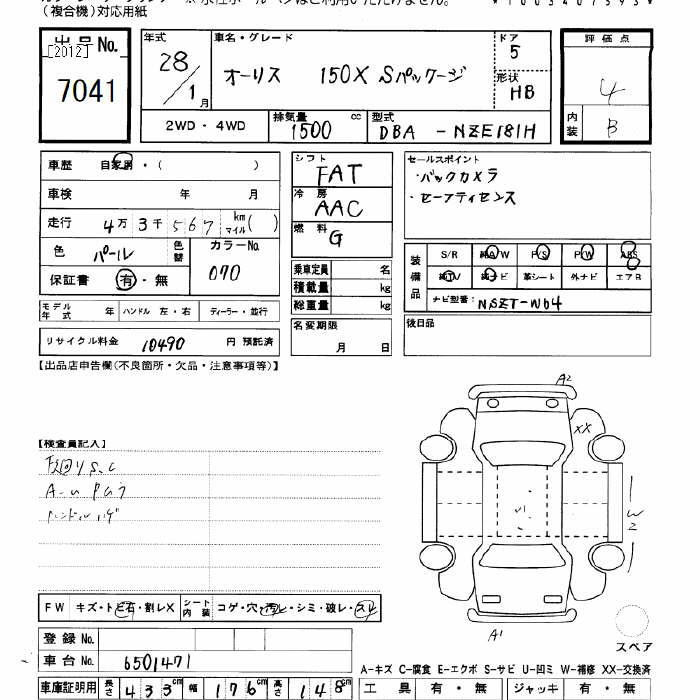 (複合機)対応用紙
出品No.
[2012]
7041
年式
28/1月
車名・グレード
オーリス 150X Sパッケージ
ドア
5
形状
HB
評価点
4
内装
B
2WD・4WD
排気量
1500 cc
型式
DBA - NZE181H
車歴 自家用・( )
車検 年 月
走行 4万3千567 km マイル( )
色 パール 色替
カラーNo.
070
保証書 有・無
シフト
FAT
冷房
AAC
燃料
G
乗車定員 名
積載量 kg
総重量 kg
セールスポイント
・バックカメラ
・セーフティセンス
装備品
S/R 純A/W P/S P/W ABS
純TV 純ナビ 革シート 外ナビ エアB
ナビ型番: NSZT-W64
モデル年式 年 ハンドル 左・右 ディーラー・並行
名変期限
月 日
後日品
リサイクル料金 10490 円 預託済
【出品店申告欄(不良箇所・欠品・注意事項等)】
【検査員記入】
下廻りS.C
ハンドルハゲ
A2
XX
W2
A1
スペア
FW キズ・トビ石・割レX シート内装 コゲ・穴・汚レ・シミ・破レ・スレ
登録No.
車台No. 6501471
A-キズ C-腐食 E-エクボ S-サビ U-凹ミ W-補修 XX-交換済
車庫証明用 長さ 433cm 幅 176cm 高さ 148cm
工具 有・無 ジャッキ 有・無